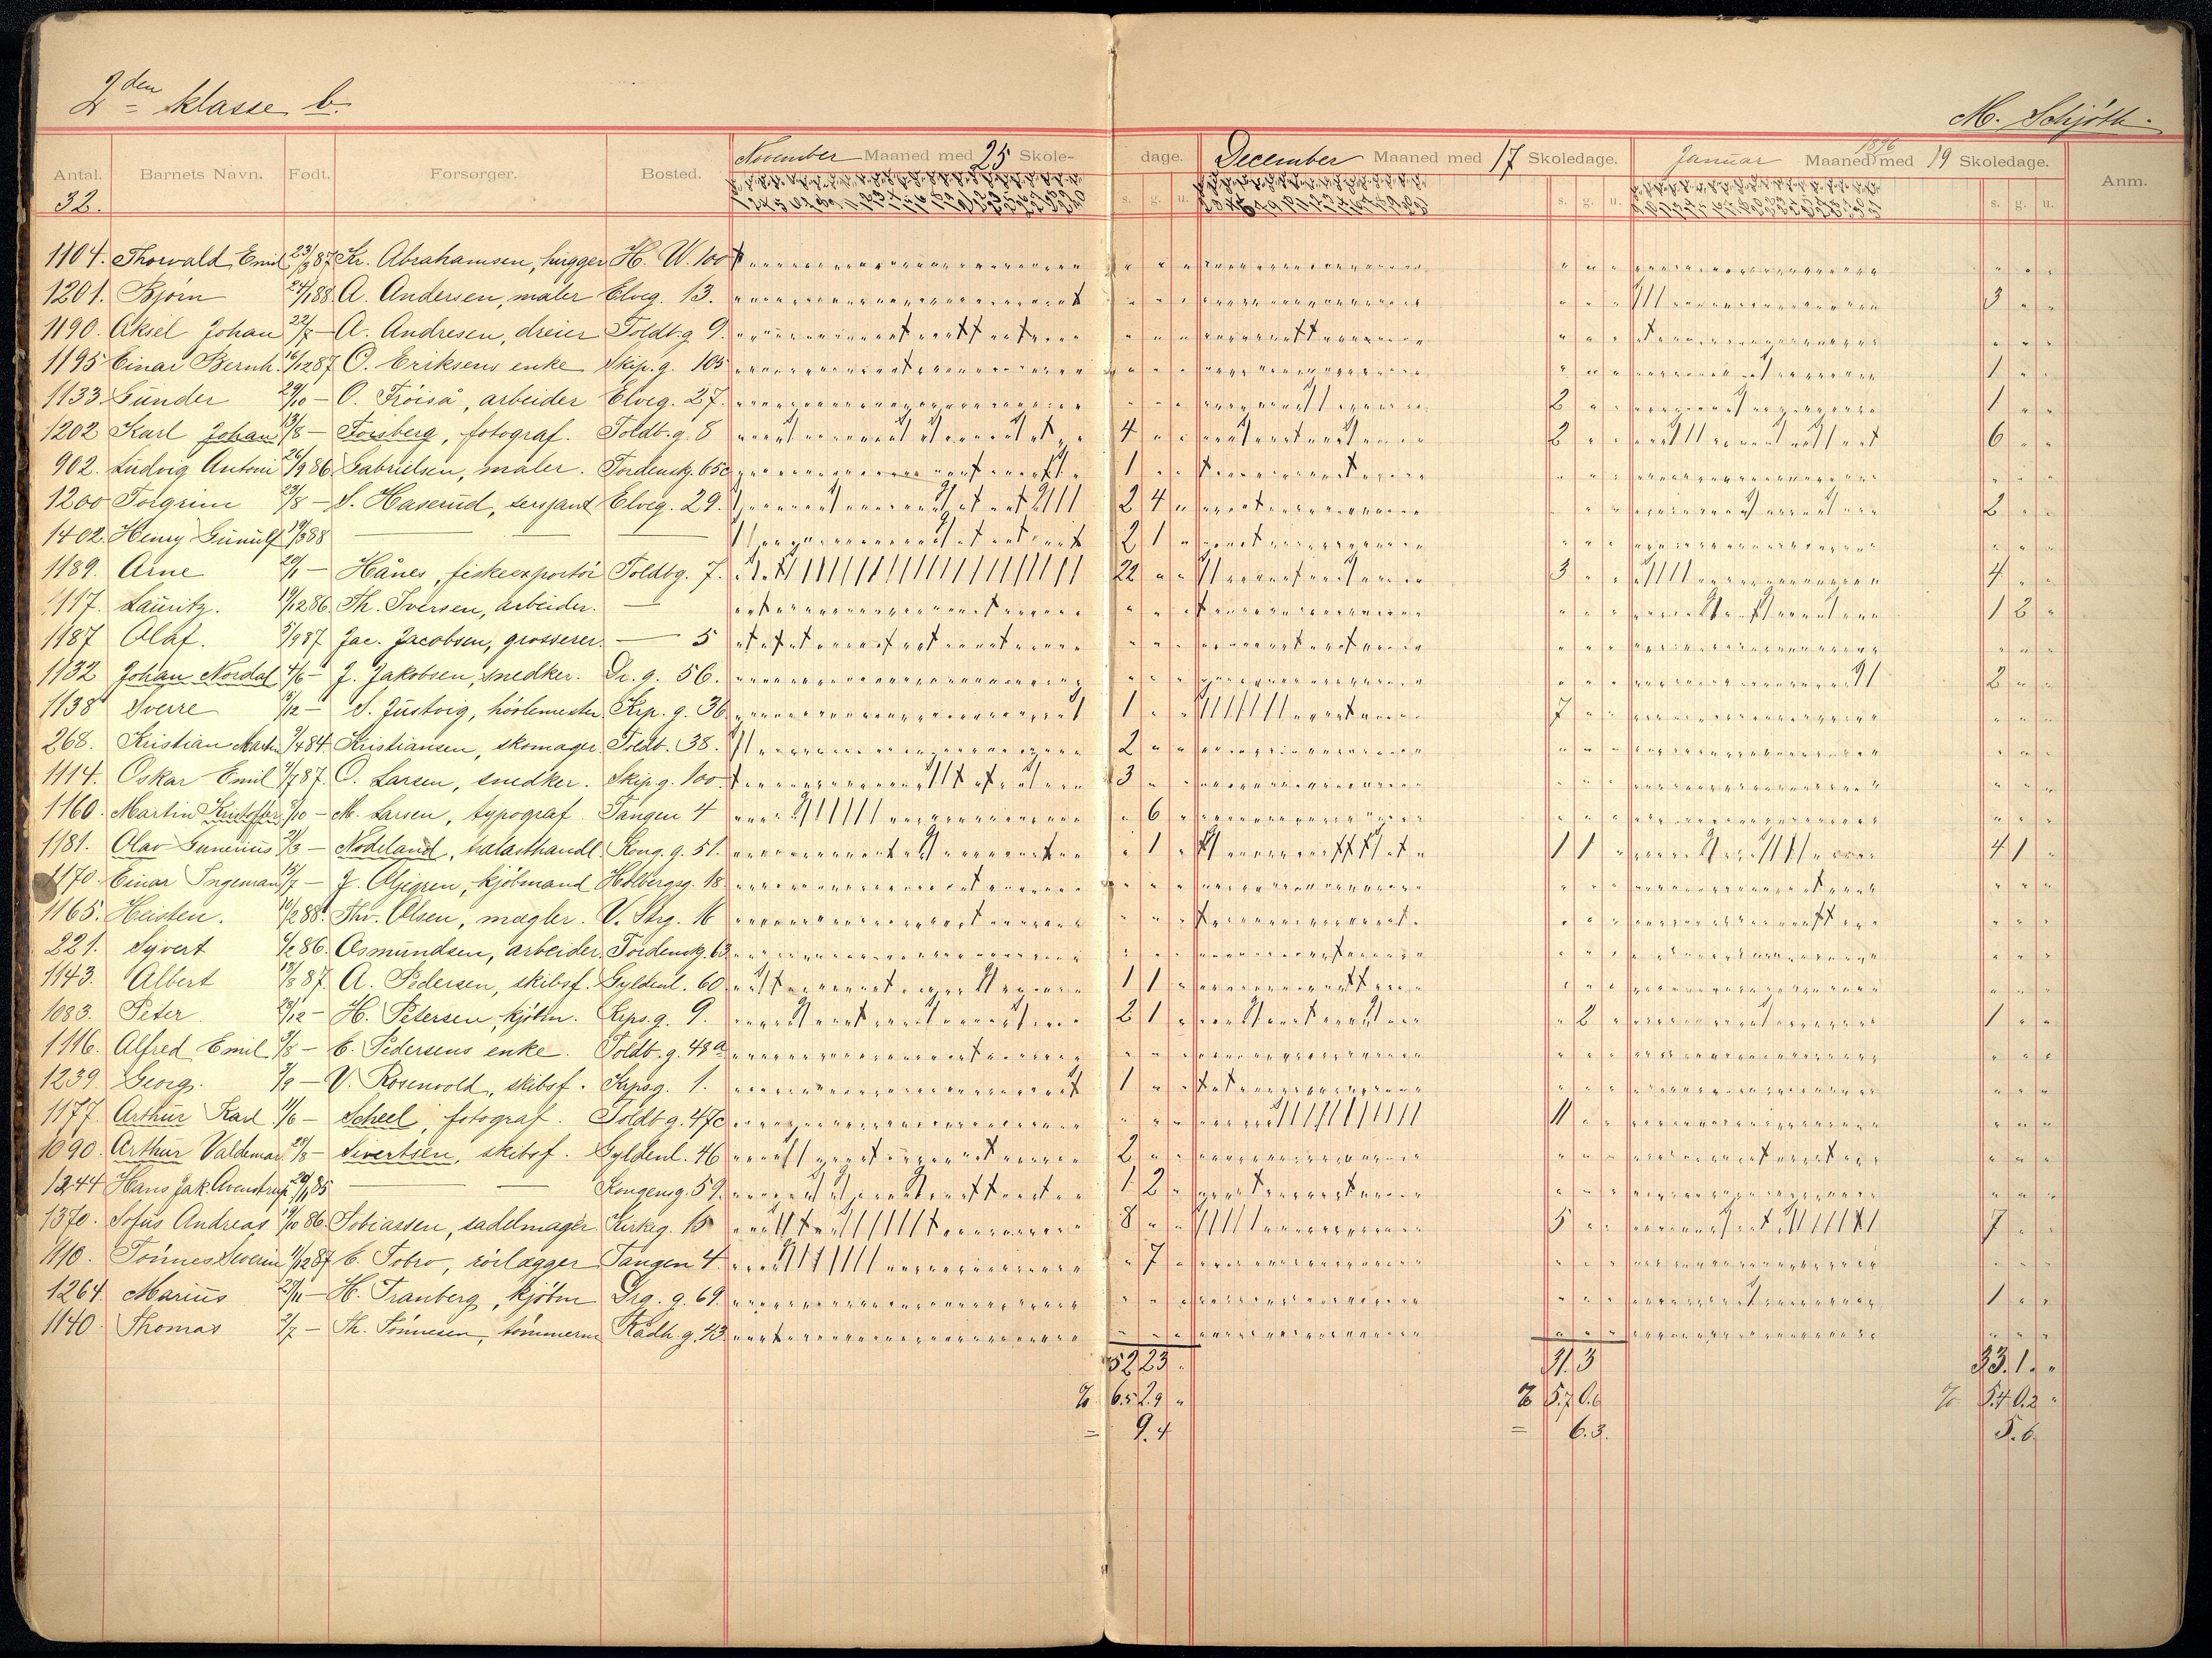 2den klasse b.
M. Schjöth.
Antal. Barnets Navn. Født. Forsørger. Bosted. November Maaned med 25 Skole- dage. December Maaned med 17 Skoledage. Januar 1896 Maaned med 19 Skoledage. Anm.
32. s. g. u. s. g. u. s. g. u.
1104. Thorvald Emil 23/3 87 Kr. Abrahamsen, hugger H. W. 100
1201. Bjørn 24/1 88. A. Andersen, maler Elveg. 13. 3
1190. Aksel Johan 22/7 — A. Andresen, dreier Toldb.g 9.
1195 Einar Bernh. 16/12 87 O. Eriksens enke Skip.g. 105 1
1133 Gunder 29/10 — O. Fröiså, arbeider Elveg. 27. 2 1
1202 Karl Johan 13/8 — Forsberg, fotograf. Toldb.g. 8 4 2 6
902. Ludvig Antoni 26/9 86 Gabrielsen, maler. Tordenskj. 65c 1
1200 Torgrim 23/8 — S. Haserud, sersjant Elveg. 29. 2 4 2
1402. Henry Gunulf 19/3 88 — — — 2 1
1189. Arne 20/1 — Hånes, fiskeexportör Toldbg. 7. 22 3 4
1117. Lauritz. 19/12 86 Th. Iversen, arbeider. — 1 2
1187 Olaf. 5/9 87 Jac. Jacobsen, grosserer. — 5
1132 Johan Nordal 4/6 — J. Jakobsen, snedker. Dr. g. 56. 2
1138 Sverre 5/12 — S. Justvig, hörlemester Krp. g. 36 1 7
268. Kristian Martin 9/4 84 Kristiansen, skomager. Toldb. 38. 2
1114. Oskar Emil 4/7 87. O. Larsen, snedker. Skip.g. 100 3
1160. Martin Kristoffer 8/10 — M. Larsen, typograf Tangen 4 6
1181. Olav Gunerius 21/3 — Nodeland, balasthandl. Kong. g. 51. 1 1 1 4 1
1170. Einar Ingeman 15/7 — J. Oljegren, kjöbmand Holbergsg. 18
1165. Heisten. 10/2 88. Thv. Olsen, mægler. V. Strg. 16
221. Syvert 6/2 86. Osmundsen, arbeider. Tordenskj. 63
1143. Albert 13/8 87. A. Pedersen, skibsf. Gyldenl. 60 1 1
1083. Peter 28/12 — H. Petersen, kjöbm. Krps.g. 9. 2 1 2 1
1116. Alfred Emil 3/8 — E. Pedersens enke. Toldb.g. 48a
1239. Georg. 3/9 — V. Rosenvold, skibsf. Krpsg. 1. 1
1177. Arthur Karl 11/6 — Scheel, fotograf. Toldb g. 47c 11
1090. Arthur Valdemar 28/8 — Sivertsen, skibsf. Gyldenl. 46 2
1244 Hans Jak. Avenstrup 29/11 85 — — Kongensg. 59. 1 2
1370. Sofus Andreas 19/10 86. Tobiassen, sadelmager. Kirkeg. 15 8 5 7
1110. Tönnes Severin 11/12 87 C. Tobro, rörlægger Tangen 4. 7
1264. Marius 25/11 — H. Tranberg, kjöbm Drg. g. 69. 1
1140. Thomas 3/7 — Th. Tönnesen, tömmerm Rådh. g. 43
52 23 31. 3 33. 1.
% 6.5 2.9 % 5.7 0.6 % 5.4 0.2
= 9.4 = 6.3. 5.6